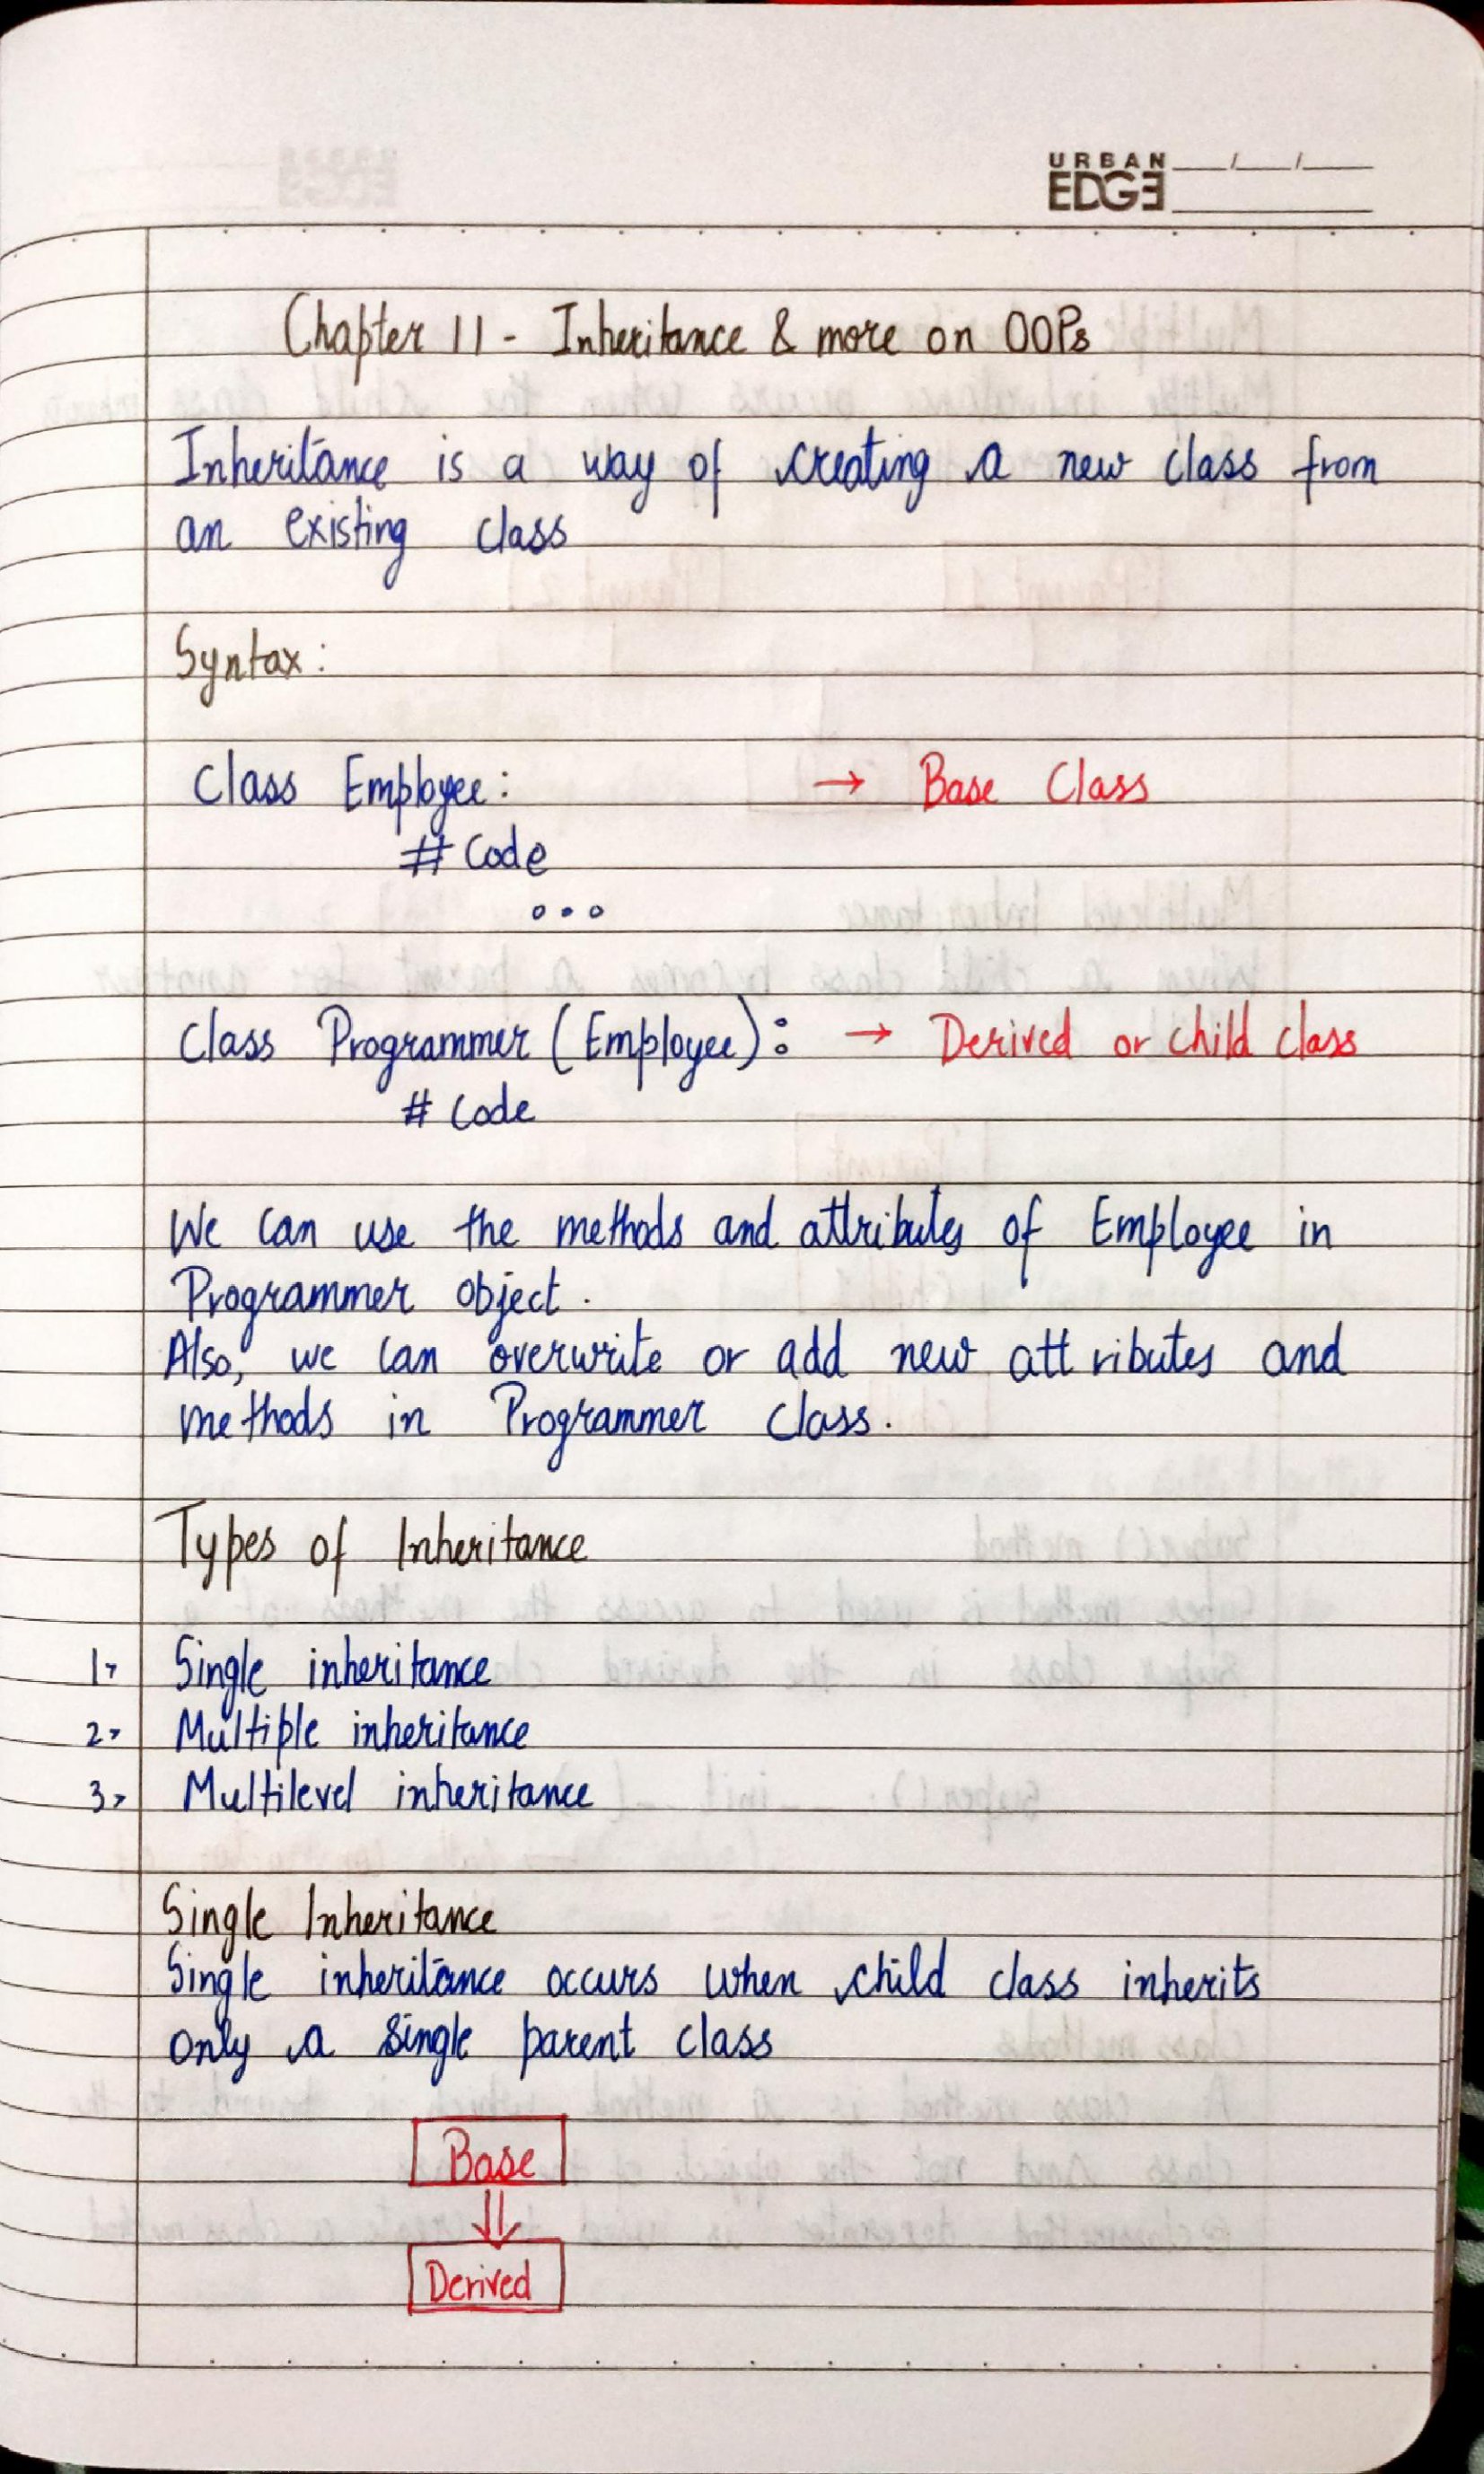 URBAN
EDGE
Chapter 11 - Inheritance & more on OOPs
Inheritance is a way of creating a new class from
an existing class
Syntax:
Class Employee: → Base Class
# Code
...
Class Programmer (Employee): → Derived or child class
# Code
We can use the methods and attributes of Employee in
Programmer object.
Also, we can overwrite or add new attributes and
methods in Programmer class.
Types of Inheritance
1> Single inheritance
2> Multiple inheritance
3> Multilevel inheritance
Single Inheritance
Single inheritance occurs when child class inherits
only a single parent class
Base
Derived